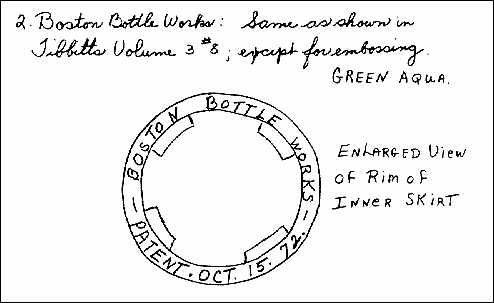 2. Boston Bottle Works: Same as shown in
Tibbitts Volume 3 #8; except for embossing.
GREEN AQUA.
BOSTON BOTTLE WORKS –
– PATENT. OCT. 15. 72.
ENLARGED View
OF Rim OF
INNER SKIRT